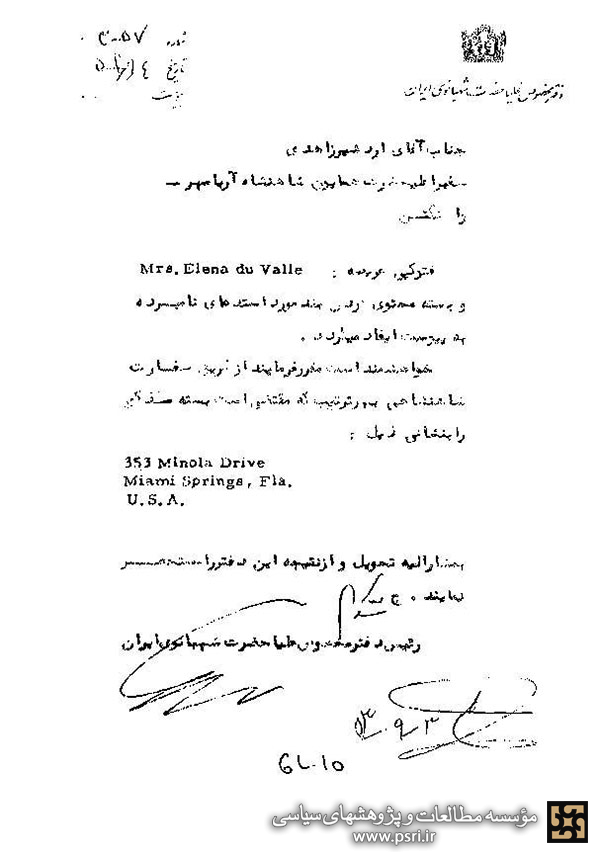 شماره ۳۰۵۷
تاریخ
پیوست
دفتر مخصوص علیاحضرت شهبانوی ایران
جناب آقای اردشیر زاهدی
سفیر اعلیحضرت همایون شاهنشاه آریامهر ــ
واشنگتن
فتوکپی عریضه : Mrs. Elena du Valle
و بسته محتوی
به پیوست ایفاد میگردد .
خواهشمند است مقرر فرمایند از طریق سفارت
شاهنشاهی بهر ترتیب که مقتضی است بسته مذکور
را بنشانی ذیل :
353 Minola Drive
Miami Springs, Fla.
U.S.A.
بمشارالیه تحویل و از نتیجه این دفتر را مستحضر
نمایند .
رئیس دفتر مخصوص علیاحضرت شهبانوی ایران
۵۳.۹.۳
GL.10
مؤسسه مطالعات و پژوهشهای سیاسی
www.psri.ir